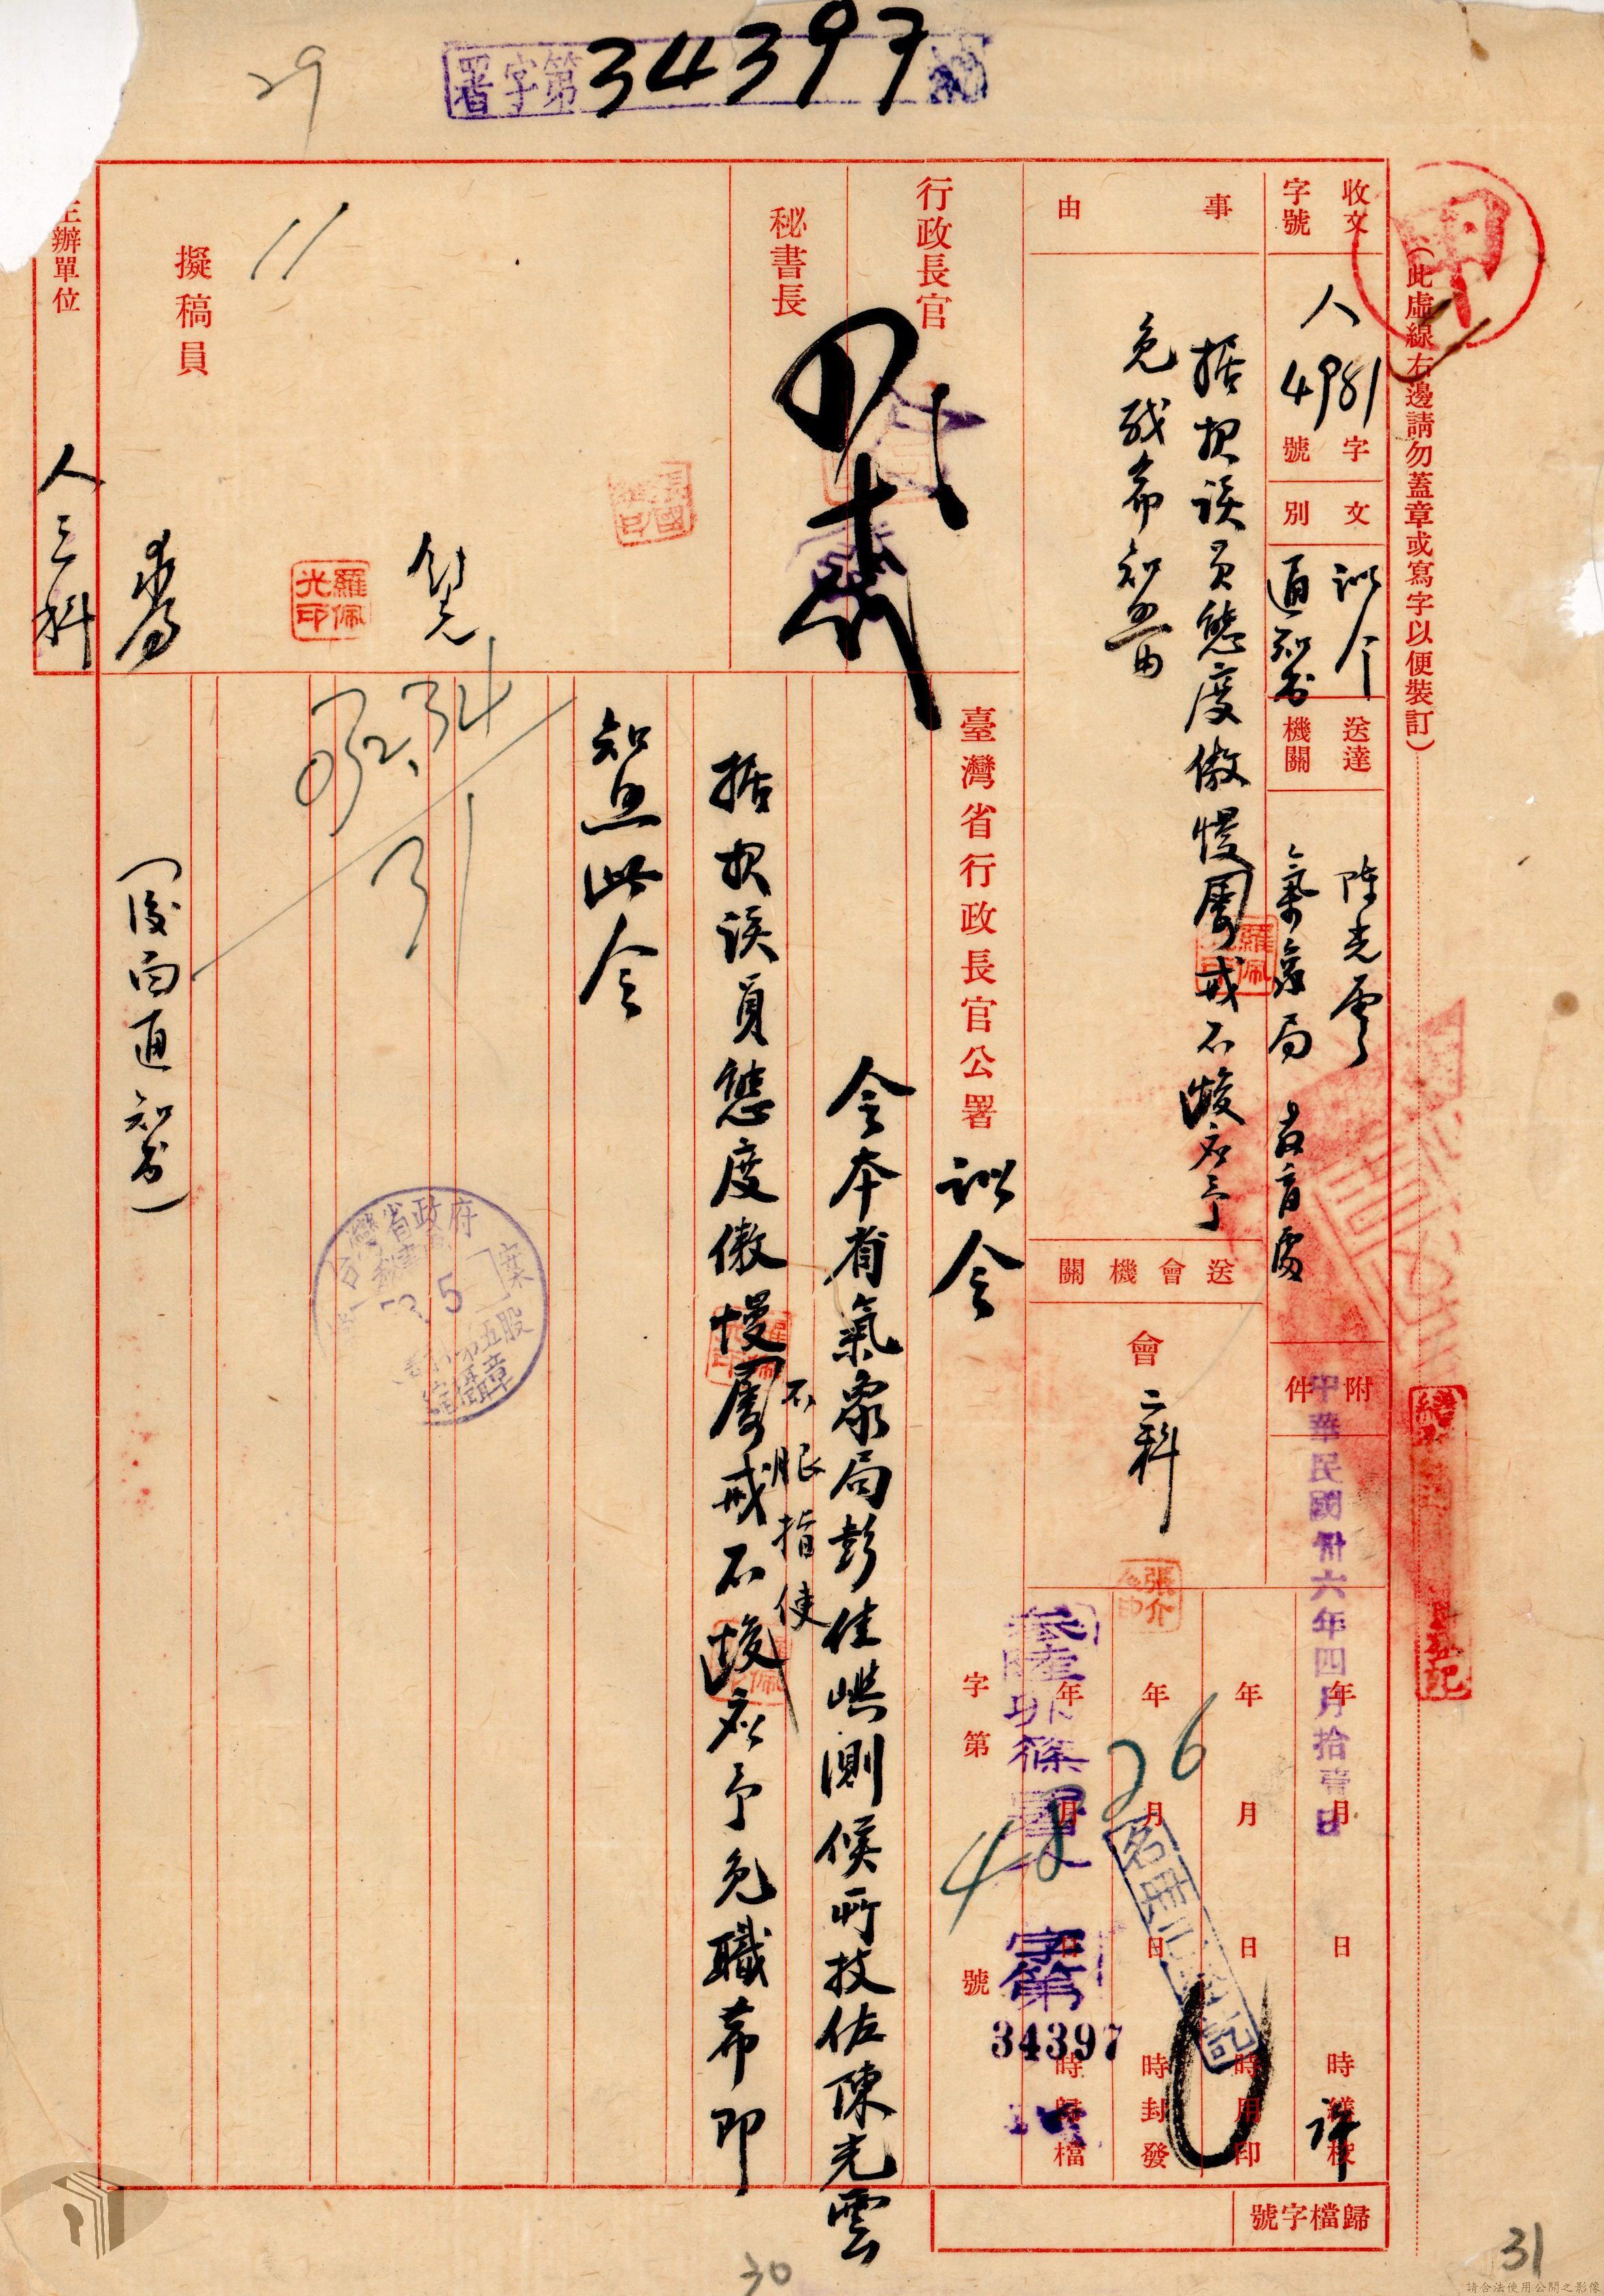 29
署字第34397號
(此虛線右邊請勿蓋章或寫字以便裝訂)
甲
收文字號
人4981
字號
文別
訓令
通知書
送達機關
陳光雲
氣象局 教育處
附件
中華民國卅六年四月拾壹日
事由
据报该员態度傲慢屢戒不悛应予
免职希知照由
送會機關
會二科
張介
年 月 日 時繕校
年 月 日 時用印
年 月 日 時封發
年 月 日 時歸檔
字第 號
字第
34397
行政長官
秘書長
擬稿員
11
羅佩光印
主辦單位
人三科
臺灣省行政長官公署 訓令
令本省氣象局彭佳嶼測候所技佐陳光雲
据报该員態度傲慢屢戒不悛应予免職希即
不服指使
知照此令
032.34
31
(後面通知書)
台灣省政府
檔案
35
第五股
章
登記
歸檔字號
30
31
請合法使用公開之影像